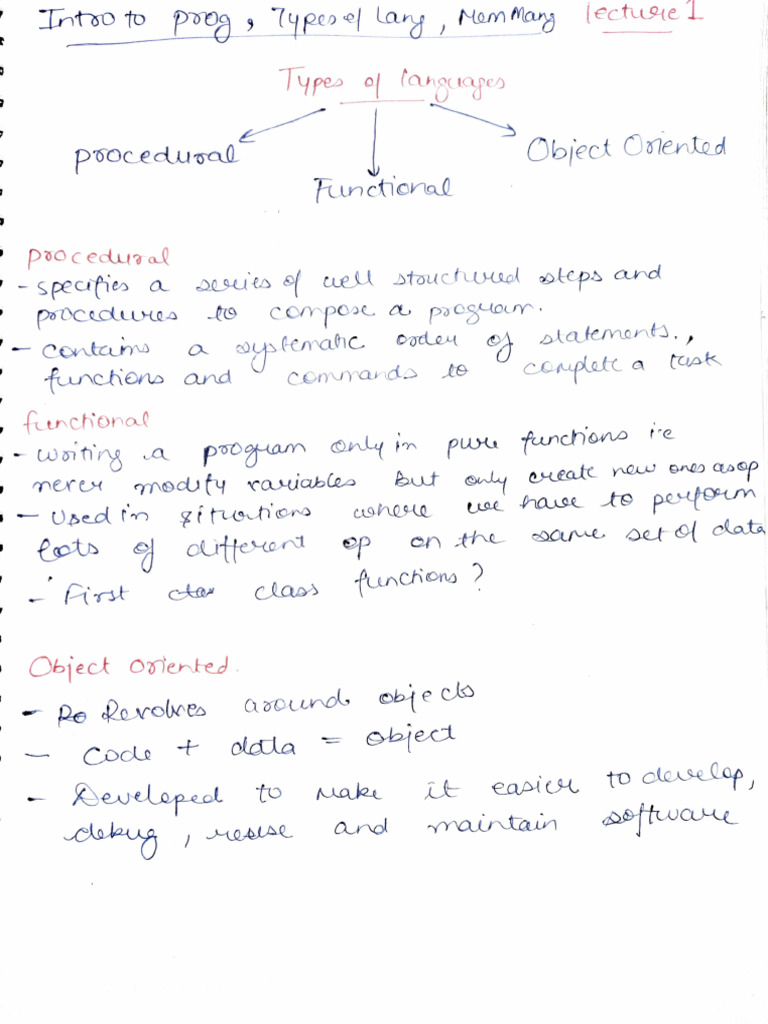 Intro to prog, Types of lang, Mem Mang lecture 1
Types of languages
procedural
Functional
Object Oriented
procedural
- specifies a series of well structured steps and
procedures to compose a program.
- contains a systematic order of statements.,
functions and commands to complete a task
functional
- writing a program only in pure functions i.e
never modify variables but only create new ones as op
- used in situations where we have to perform
lots of different op on the same set of data
- First class functions?
Object oriented.
- Revolves around objects
- code + data = object
- Developed to make it easier to develop,
debug, reuse and maintain software